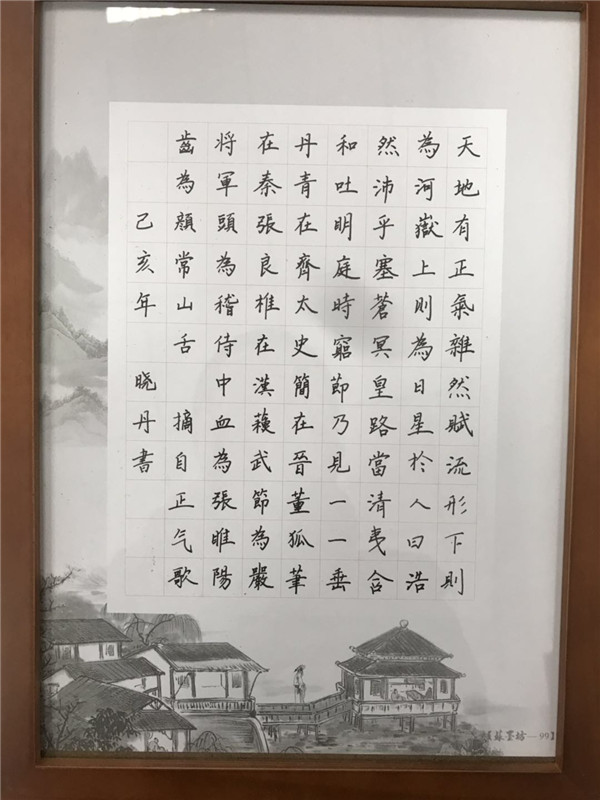 天地有正氣雜然賦流形下則
為河嶽上則為日星於人曰浩
然沛乎塞蒼冥皇路當清夷含
和吐明庭時窮節乃見一一垂
丹青在齊太史簡在晉董狐筆
在秦張良椎在漢蘓武節為嚴
將軍頭為稽侍中血為張睢陽
齒為顏常山舌 摘自正气歌
己亥年 晓丹書
蘇墨坊—99